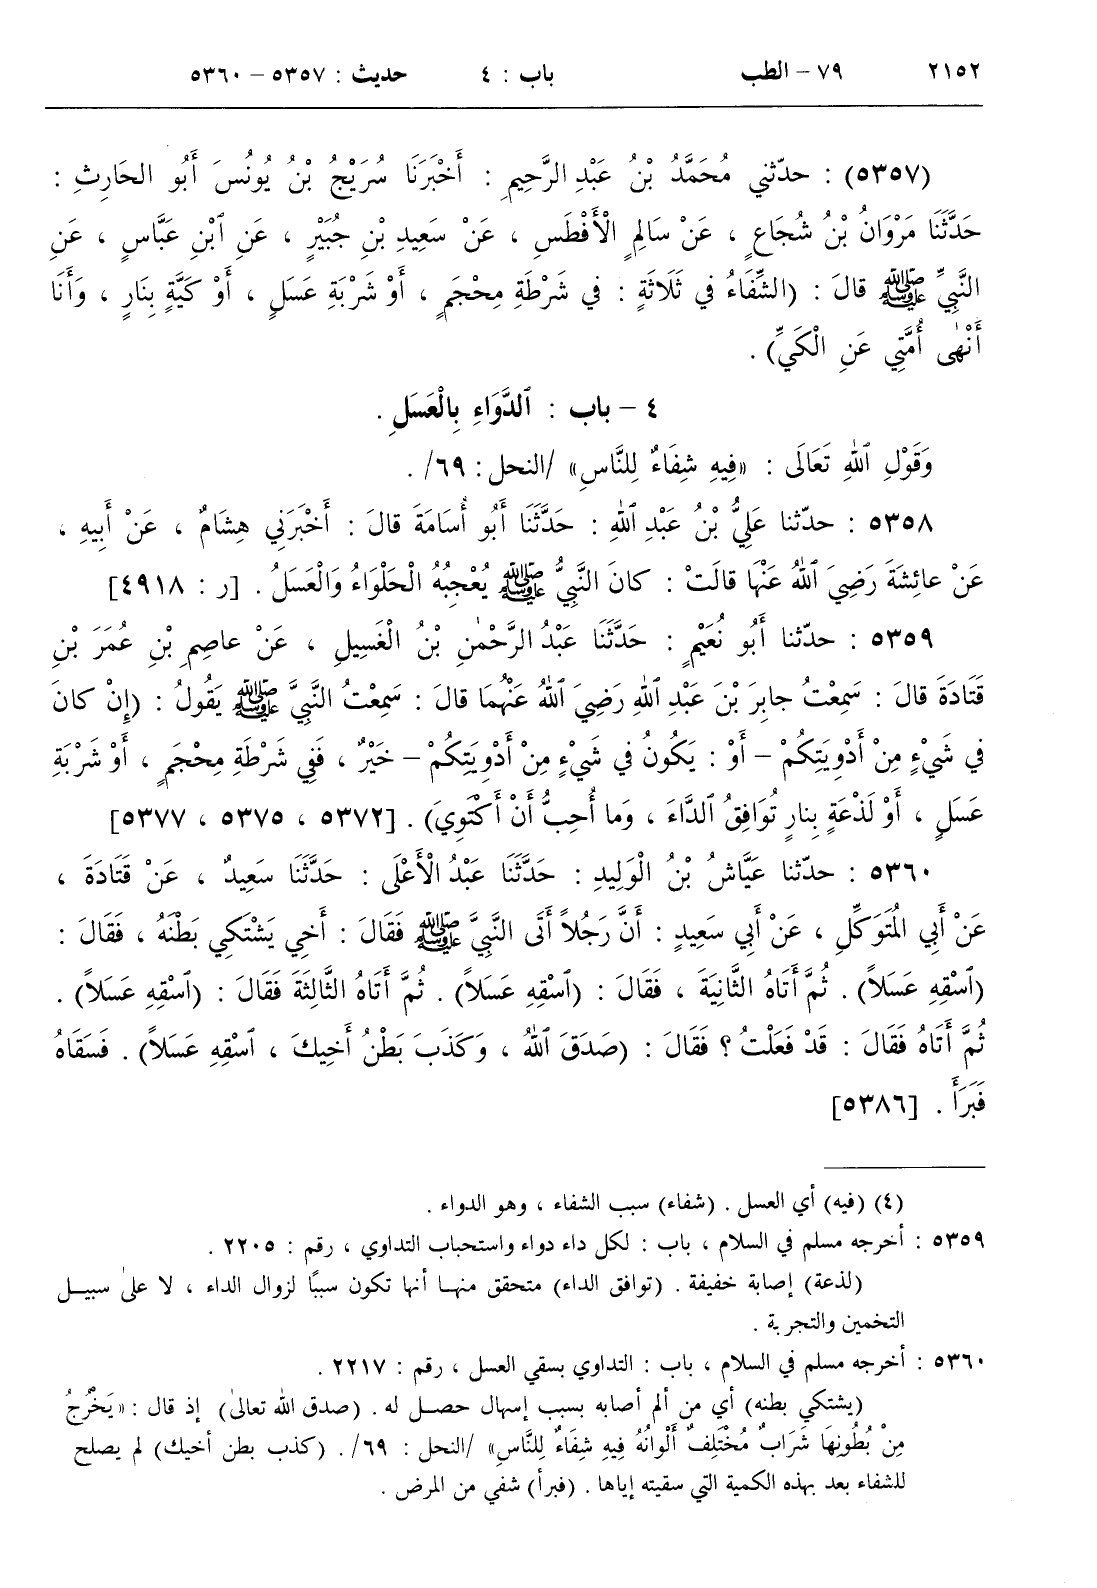 ٢١٥٢ ٧٩ – الطب باب : ٤ حديث : ٥٣٥٧ – ٥٣٦٠
(٥٣٥٧) : حدّثني مُحَمَّدُ بْنُ عَبْدِ الرَّحِيمِ : أَخْبَرَنَا سُرَيْجُ بْنُ يُونُسَ أَبُو الحَارِثِ :
حَدَّثَنَا مَرْوَانُ بْنُ شُجَاعٍ ، عَنْ سَالِمٍ الْأَفْطَسِ ، عَنْ سَعِيدِ بْنِ جُبَيْرٍ ، عَنِ ٱبْنِ عَبَّاسٍ ، عَنِ
النَّبِيِّ ﷺ قالَ : (الشِّفَاءُ فِي ثَلَاثَةٍ : فِي شَرْطَةِ مِحْجَمٍ ، أَوْ شَرْبَةِ عَسَلٍ ، أَوْ كَيَّةٍ بِنَارٍ ، وَأَنَا
أَنْهٰى أُمَّتِي عَنِ الْكَيِّ) .
٤ – باب : ٱلدَّوَاءِ بِالْعَسَلِ .
وَقَوْلِ ٱللهِ تَعَالَى : «فِيهِ شِفَاءٌ لِلنَّاسِ» /النحل : ٦٩/ .
٥٣٥٨ : حدّثنا عَلِيُّ بْنُ عَبْدِ ٱللهِ : حَدَّثَنَا أَبُو أُسَامَةَ قالَ : أَخْبَرَنِي هِشَامٌ ، عَنْ أَبِيهِ ،
عَنْ عائِشَةَ رَضِيَ ٱللهُ عَنْهَا قالَتْ : كانَ النَّبِيُّ ﷺ يُعْجِبُهُ الْحَلْوَاءُ وَالْعَسَلُ . [ر : ٤٩١٨]
٥٣٥٩ : حدّثنا أَبُو نُعَيْمٍ : حَدَّثَنَا عَبْدُ الرَّحْمٰنِ بْنُ الْغَسِيلِ ، عَنْ عاصِمِ بْنِ عُمَرَ بْنِ
قَتَادَةَ قالَ : سَمِعْتُ جابِرَ بْنَ عَبْدِ ٱللهِ رَضِيَ ٱللهُ عَنْهُمَا قالَ : سَمِعْتُ النَّبِيَّ ﷺ يَقُولُ : (إِنْ كانَ
فِي شَيْءٍ مِنْ أَدْوِيَتِكُمْ – أَوْ : يَكُونُ فِي شَيْءٍ مِنْ أَدْوِيَتِكُمْ – خَيْرٌ ، فَفِي شَرْطَةِ مِحْجَمٍ ، أَوْ شَرْبَةِ
عَسَلٍ ، أَوْ لَذْعَةٍ بِنارٍ تُوَافِقُ ٱلدَّاءَ ، وَما أُحِبُّ أَنْ أَكْتَوِيَ) . [٥٣٧٢ ، ٥٣٧٥ ، ٥٣٧٧]
٥٣٦٠ : حدّثنا عَيَّاشُ بْنُ الْوَلِيدِ : حَدَّثَنَا عَبْدُ الْأَعْلَى : حَدَّثَنَا سَعِيدٌ ، عَنْ قَتَادَةَ ،
عَنْ أَبِي المُتَوَكِّلِ ، عَنْ أَبِي سَعِيدٍ : أَنَّ رَجُلاً أَتَى النَّبِيَّ ﷺ فَقَالَ : أَخِي يَشْتَكِي بَطْنَهُ ، فَقَالَ :
(ٱسْقِهِ عَسَلاً) . ثُمَّ أَتَاهُ الثَّانِيَةَ ، فَقَالَ : (ٱسْقِهِ عَسَلاً) . ثُمَّ أَتَاهُ الثَّالِثَةَ فَقَالَ : (ٱسْقِهِ عَسَلاً) .
ثُمَّ أَتَاهُ فَقَالَ : قَدْ فَعَلْتُ ؟ فَقَالَ : (صَدَقَ ٱللهُ ، وَكَذَبَ بَطْنُ أَخِيكَ ، ٱسْقِهِ عَسَلاً) . فَسَقَاهُ
فَبَرَأَ . [٥٣٨٦]
(٤) (فيه) أي العسل . (شفاء) سبب الشفاء ، وهو الدواء .
٥٣٥٩ : أخرجه مسلم في السلام ، باب : لكل داء دواء واستحباب التداوي ، رقم : ٢٢٠٥ .
(لذعة) إصابة خفيفة . (توافق الداء) متحقق منها أنها تكون سببًا لزوال الداء ، لا علىٰ سبيل
التخمين والتجربة .
٥٣٦٠ : أخرجه مسلم في السلام ، باب : التداوي بسقي العسل ، رقم : ٢٢١٧ .
(يشتكي بطنه) أي من ألم أصابه بسبب إسهال حصل له . (صدق الله تعالىٰ) إذ قال : «يَخْرُجُ
مِنْ بُطُونِهَا شَرَابٌ مُخْتَلِفٌ أَلْوَانُهُ فِيهِ شِفَاءٌ لِلنَّاسِ» /النحل : ٦٩/ . (كذب بطن أخيك) لم يصلح
للشفاء بعد بهذه الكمية التي سقيته إياها . (فبرأ) شفي من المرض .